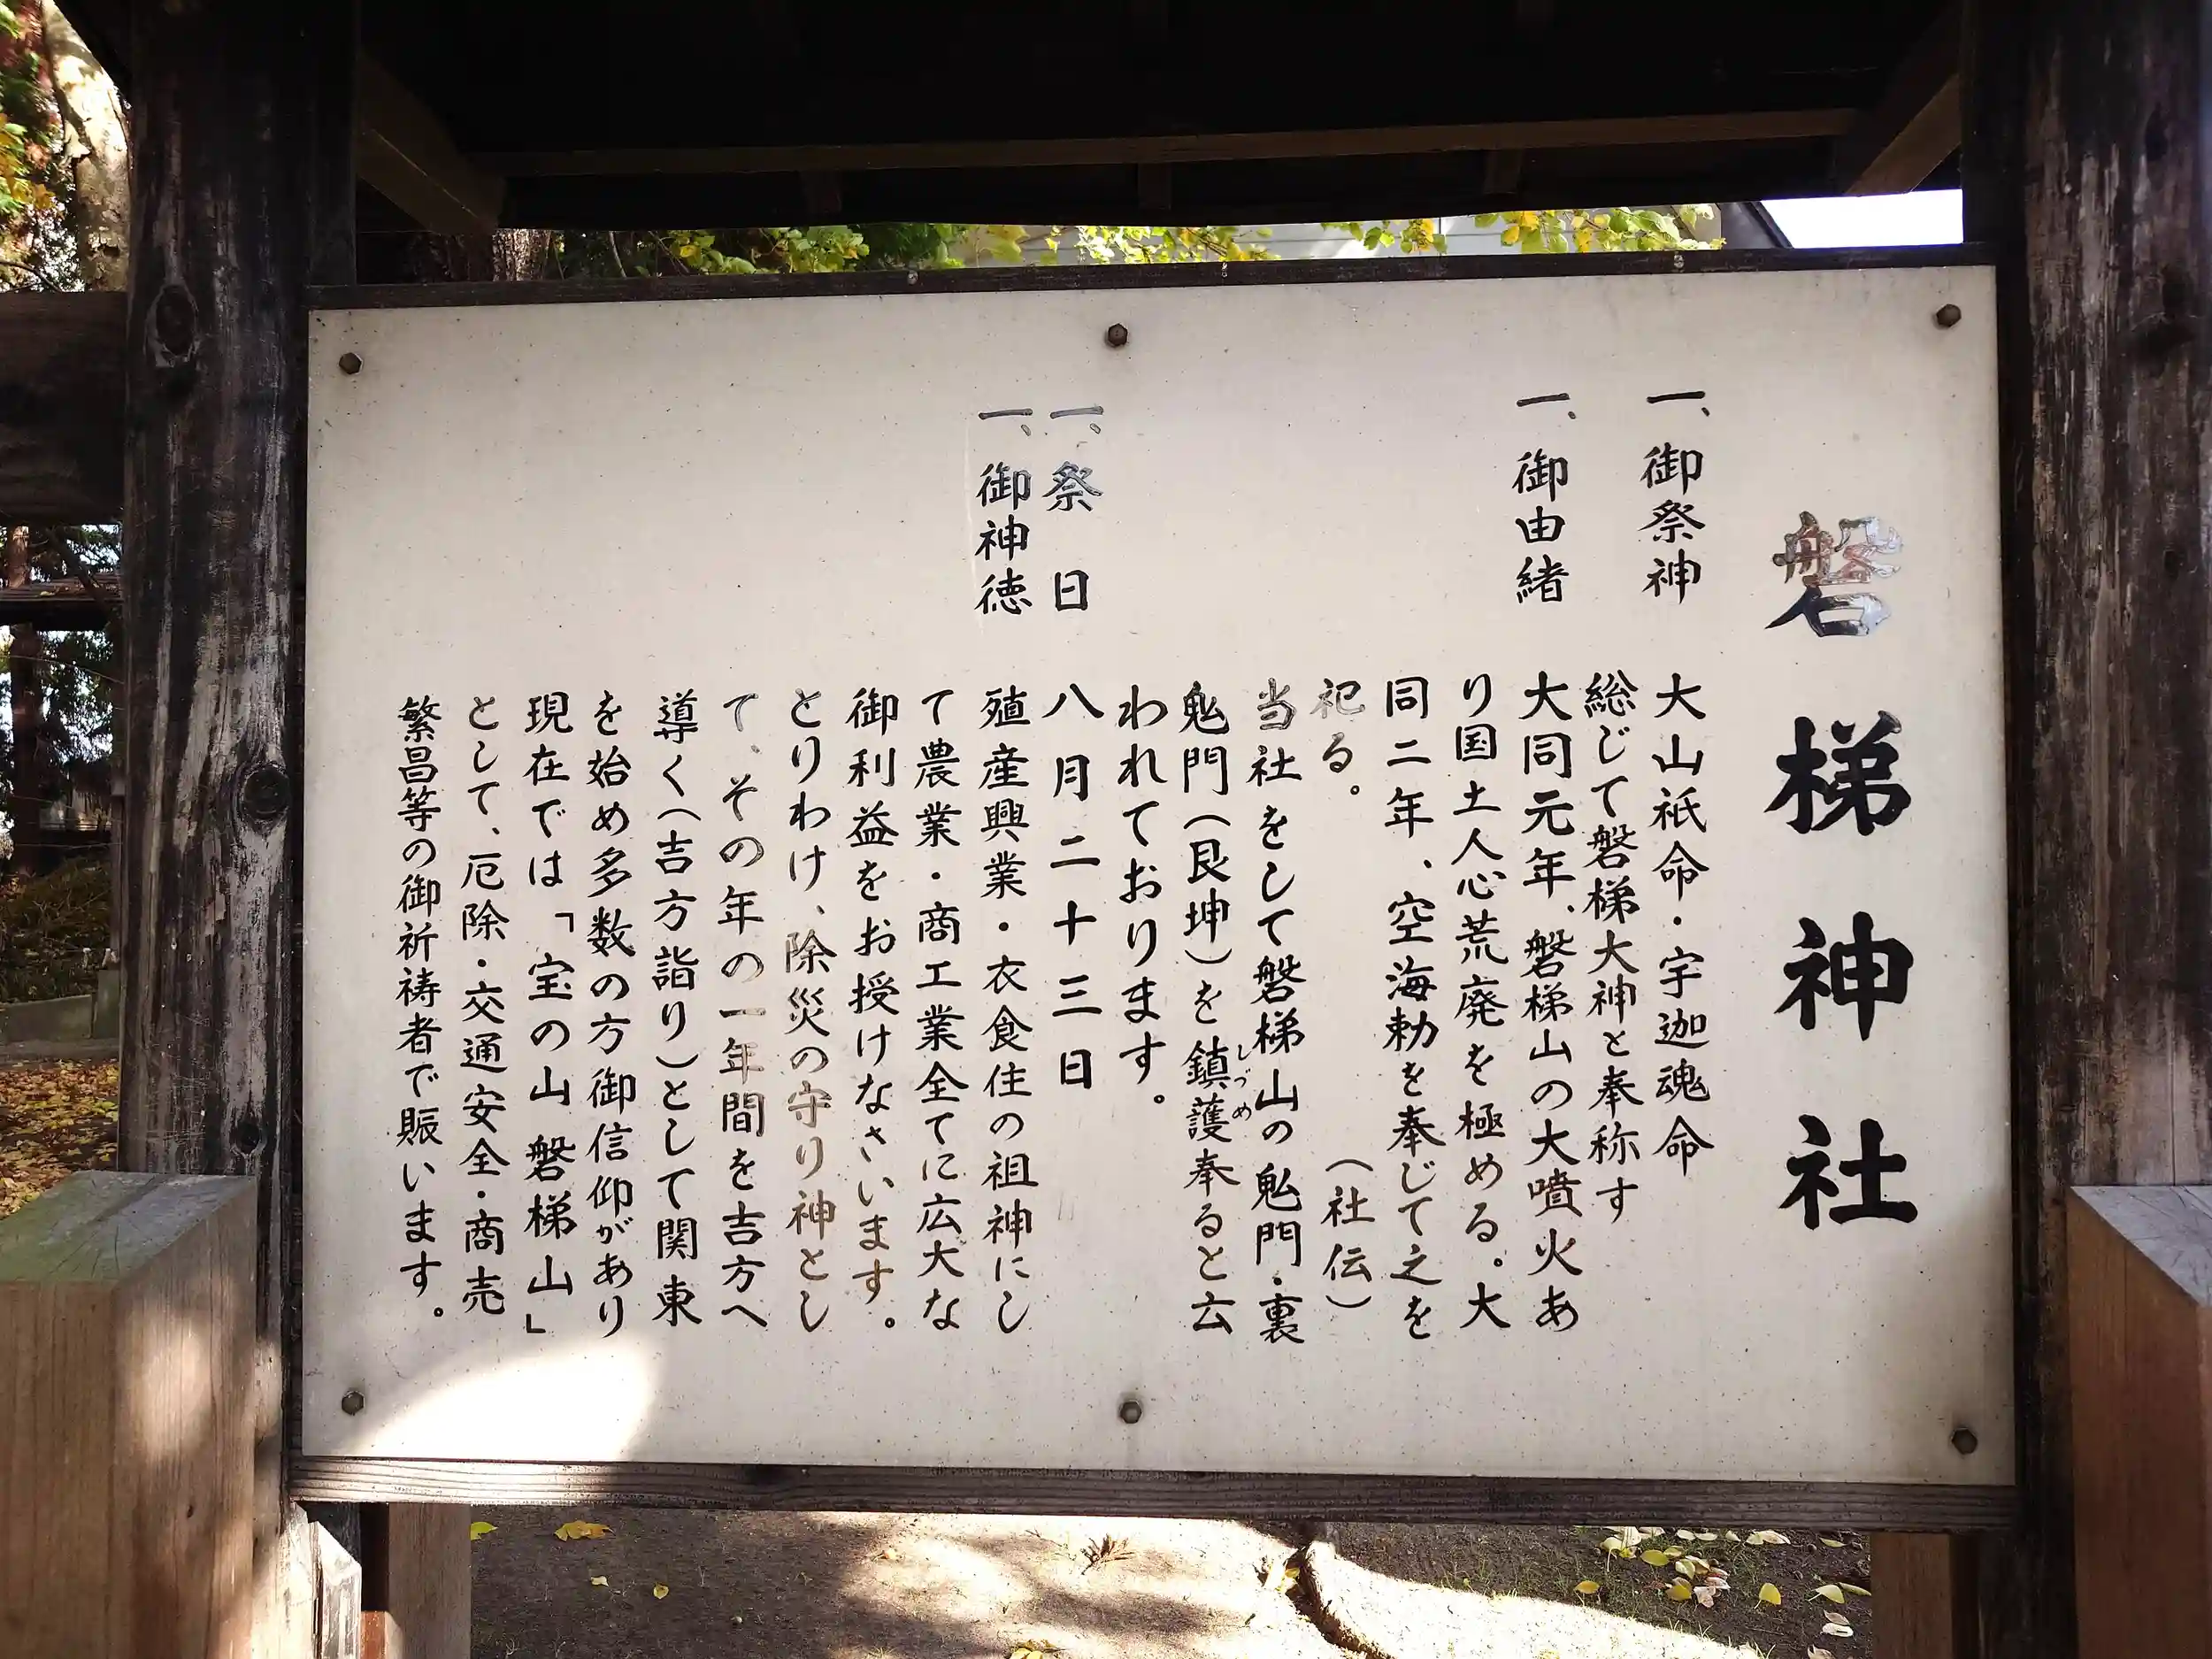 磐梯神社
一、御祭神 大山祇命・宇迦魂命
総じて磐梯大神と奉称す
一、御由緒 大同元年、磐梯山の大噴火あ
り国土人心荒廃を極める。大
同二年、空海勅を奉じて之を
祀る。 (社伝)
当社をして磐梯山の鬼門・裏
鬼門(艮坤)を鎮護しづめ奉ると云
われております。
一、祭日 八月二十三日
一、御神徳 殖産興業・衣食住の祖神にし
て農業・商工業全てに広大な
御利益をお授けなさいます。
とりわけ、除災の守り神とし
て、その年の一年間を吉方へ
導く(吉方詣り)として関東
を始め多数の方御信仰があり
現在では「宝の山 磐梯山」
として、厄除・交通安全・商売
繁昌等の御祈祷者で賑います。